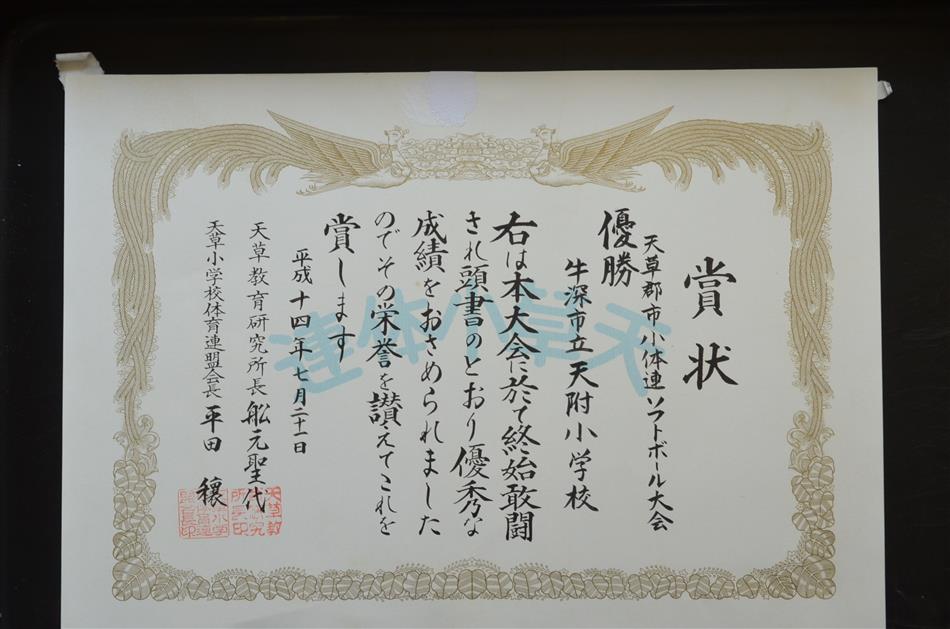 賞状
天草郡市小体連ソフトボール大会
優勝
牛深市立天附小学校
右は本大会に於て終始敢闘
され頭書のとおり優秀な
成績をおさめられました
のでその栄誉を讃えてこれを
賞します
平成十四年七月二十一日
天草教育研究所長 舩元聖代
天草小学校体育連盟会長 平田 穣
天草小体連